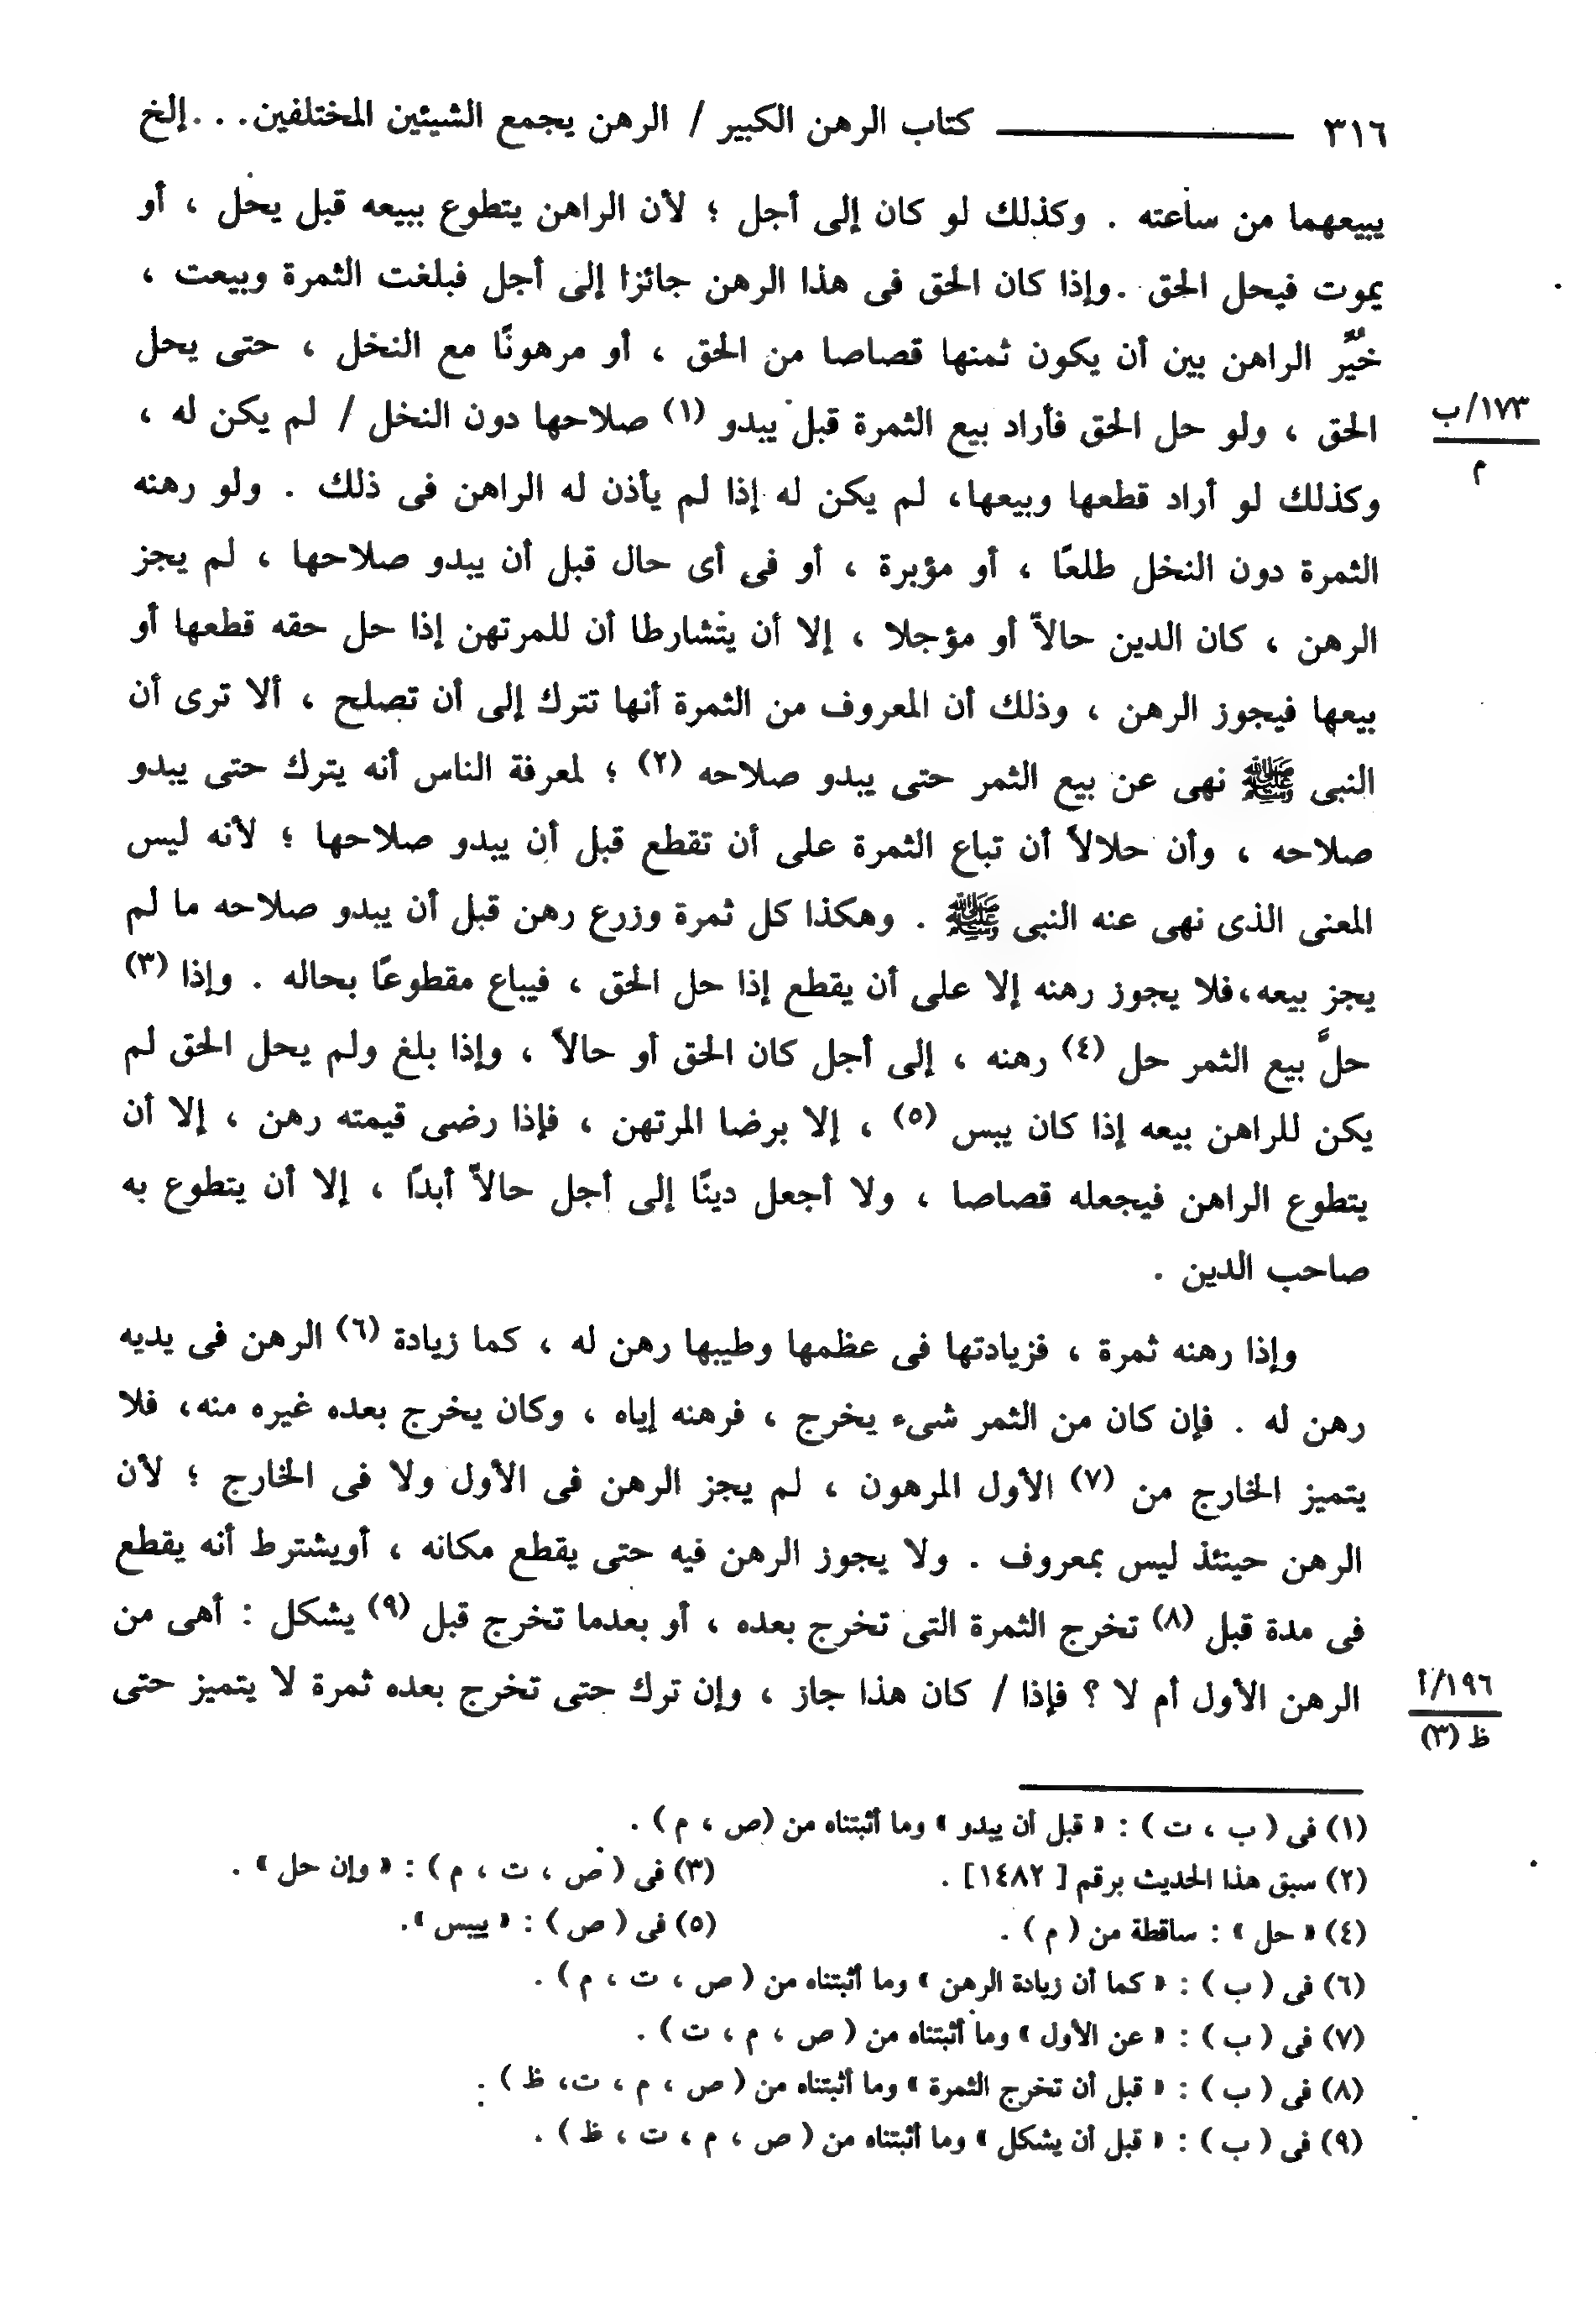 ٣١٦ كتاب الرهن الكبير / الرهن يجمع الشيئين المختلفين. . .إلخ
يبيعهما من ساعته . وكذلك لو كان إلى أجل ؛ لأن الراهن يتطوع ببيعه قبل يحل ، أو
يموت فيحل الحق .وإذا كان الحق فى هذا الرهن جائزا إلى أجل فبلغت الثمرة وبيعت ،
خُيِّر الراهن بين أن يكون ثمنها قصاصا من الحق ، أو مرهونًا مع النخل ، حتى يحل
الحق ، ولو حل الحق فأراد بيع الثمرة قبل يبدو (١) صلاحها دون النخل / لم يكن له ،
١٧٣/ب
م
وكذلك لو أراد قطعها وبيعها، لم يكن له إذا لم يأذن له الراهن فى ذلك . ولو رهنه
الثمرة دون النخل طلعًا ، أو مؤبرة ، أو فى أى حال قبل أن يبدو صلاحها ، لم يجز
الرهن ، كان الدين حالاً أو مؤجلا ، إلا أن يتشارطا أن للمرتهن إذا حل حقه قطعها أو
بيعها فيجوز الرهن ، وذلك أن المعروف من الثمرة أنها تترك إلى أن تصلح ، ألا ترى أن
النبى ﷺ نهى عن بيع الثمر حتى يبدو صلاحه (٢) ؛ لمعرفة الناس أنه يترك حتى يبدو
صلاحه ، وأن حلالاً أن تباع الثمرة على أن تقطع قبل أن يبدو صلاحها ؛ لأنه ليس
المعنى الذى نهى عنه النبى ﷺ . وهكذا كل ثمرة وزرع رهن قبل أن يبدو صلاحه ما لم
يجز بيعه،فلا يجوز رهنه إلا على أن يقطع إذا حل الحق ، فيباع مقطوعًا بحاله . وإذا (٣)
حلَّ بيع الثمر حل (٤) رهنه ، إلى أجل كان الحق أو حالاً ، وإذا بلغ ولم يحل الحق لم
يكن للراهن بيعه إذا كان يبس (٥) ، إلا برضا المرتهن ، فإذا رضى قيمته رهن ، إلا أن
يتطوع الراهن فيجعله قصاصا ، ولا أجعل دينًا إلى أجل حالاً أبدًا ، إلا أن يتطوع به
صاحب الدين .
وإذا رهنه ثمرة ، فزيادتها فى عظمها وطيبها رهن له ، كما زيادة (٦) الرهن فى يديه
رهن له . فإن كان من الثمر شىء يخرج ، فرهنه إياه ، وكان يخرج بعده غيره منه، فلا
يتميز الخارج من (٧) الأول المرهون ، لم يجز الرهن فى الأول ولا فى الخارج ؛ لأن
الرهن حينئذ ليس بمعروف . ولا يجوز الرهن فيه حتى يقطع مكانه ، أويشترط أنه يقطع
فى مدة قبل (٨) تخرج الثمرة التى تخرج بعده ، أو بعدما تخرج قبل (٩) يشكل : أهى من
الرهن الأول أم لا ؟ فإذا / كان هذا جاز ، وإن ترك حتى تخرج بعده ثمرة لا يتميز حتى
١٩٦/أ
ظ (٣)
(١) فى ( ب ، ت ) : « قبل أن يبدو » وما أثبتناه من (ص ، م ) .
(٢) سبق هذا الحديث برقم [ ١٤٨٢] . (٣) فى ( ص ، ت ، م ) : « وإن حل » .
(٤) « حل » : ساقطة من ( م ) . (٥) فى ( ص ) : « ييبس ».
(٦) فى ( ب ) : « كما أن زيادة الرهن » وما أثبتناه من ( ص ، ت ، م ) .
(٧) فى ( ب ) : « عن الأول » وما أثبتناه من ( ص ، م ، ت ) .
(٨) فى ( ب ) : « قبل أن تخرج الثمرة » وما أثبتناه من ( ص ، م ، ت، ظ ) .
(٩) فى ( ب ) : « قبل أن يشكل » وما أثبتناه من ( ص ، م ، ت ، ظ ) .